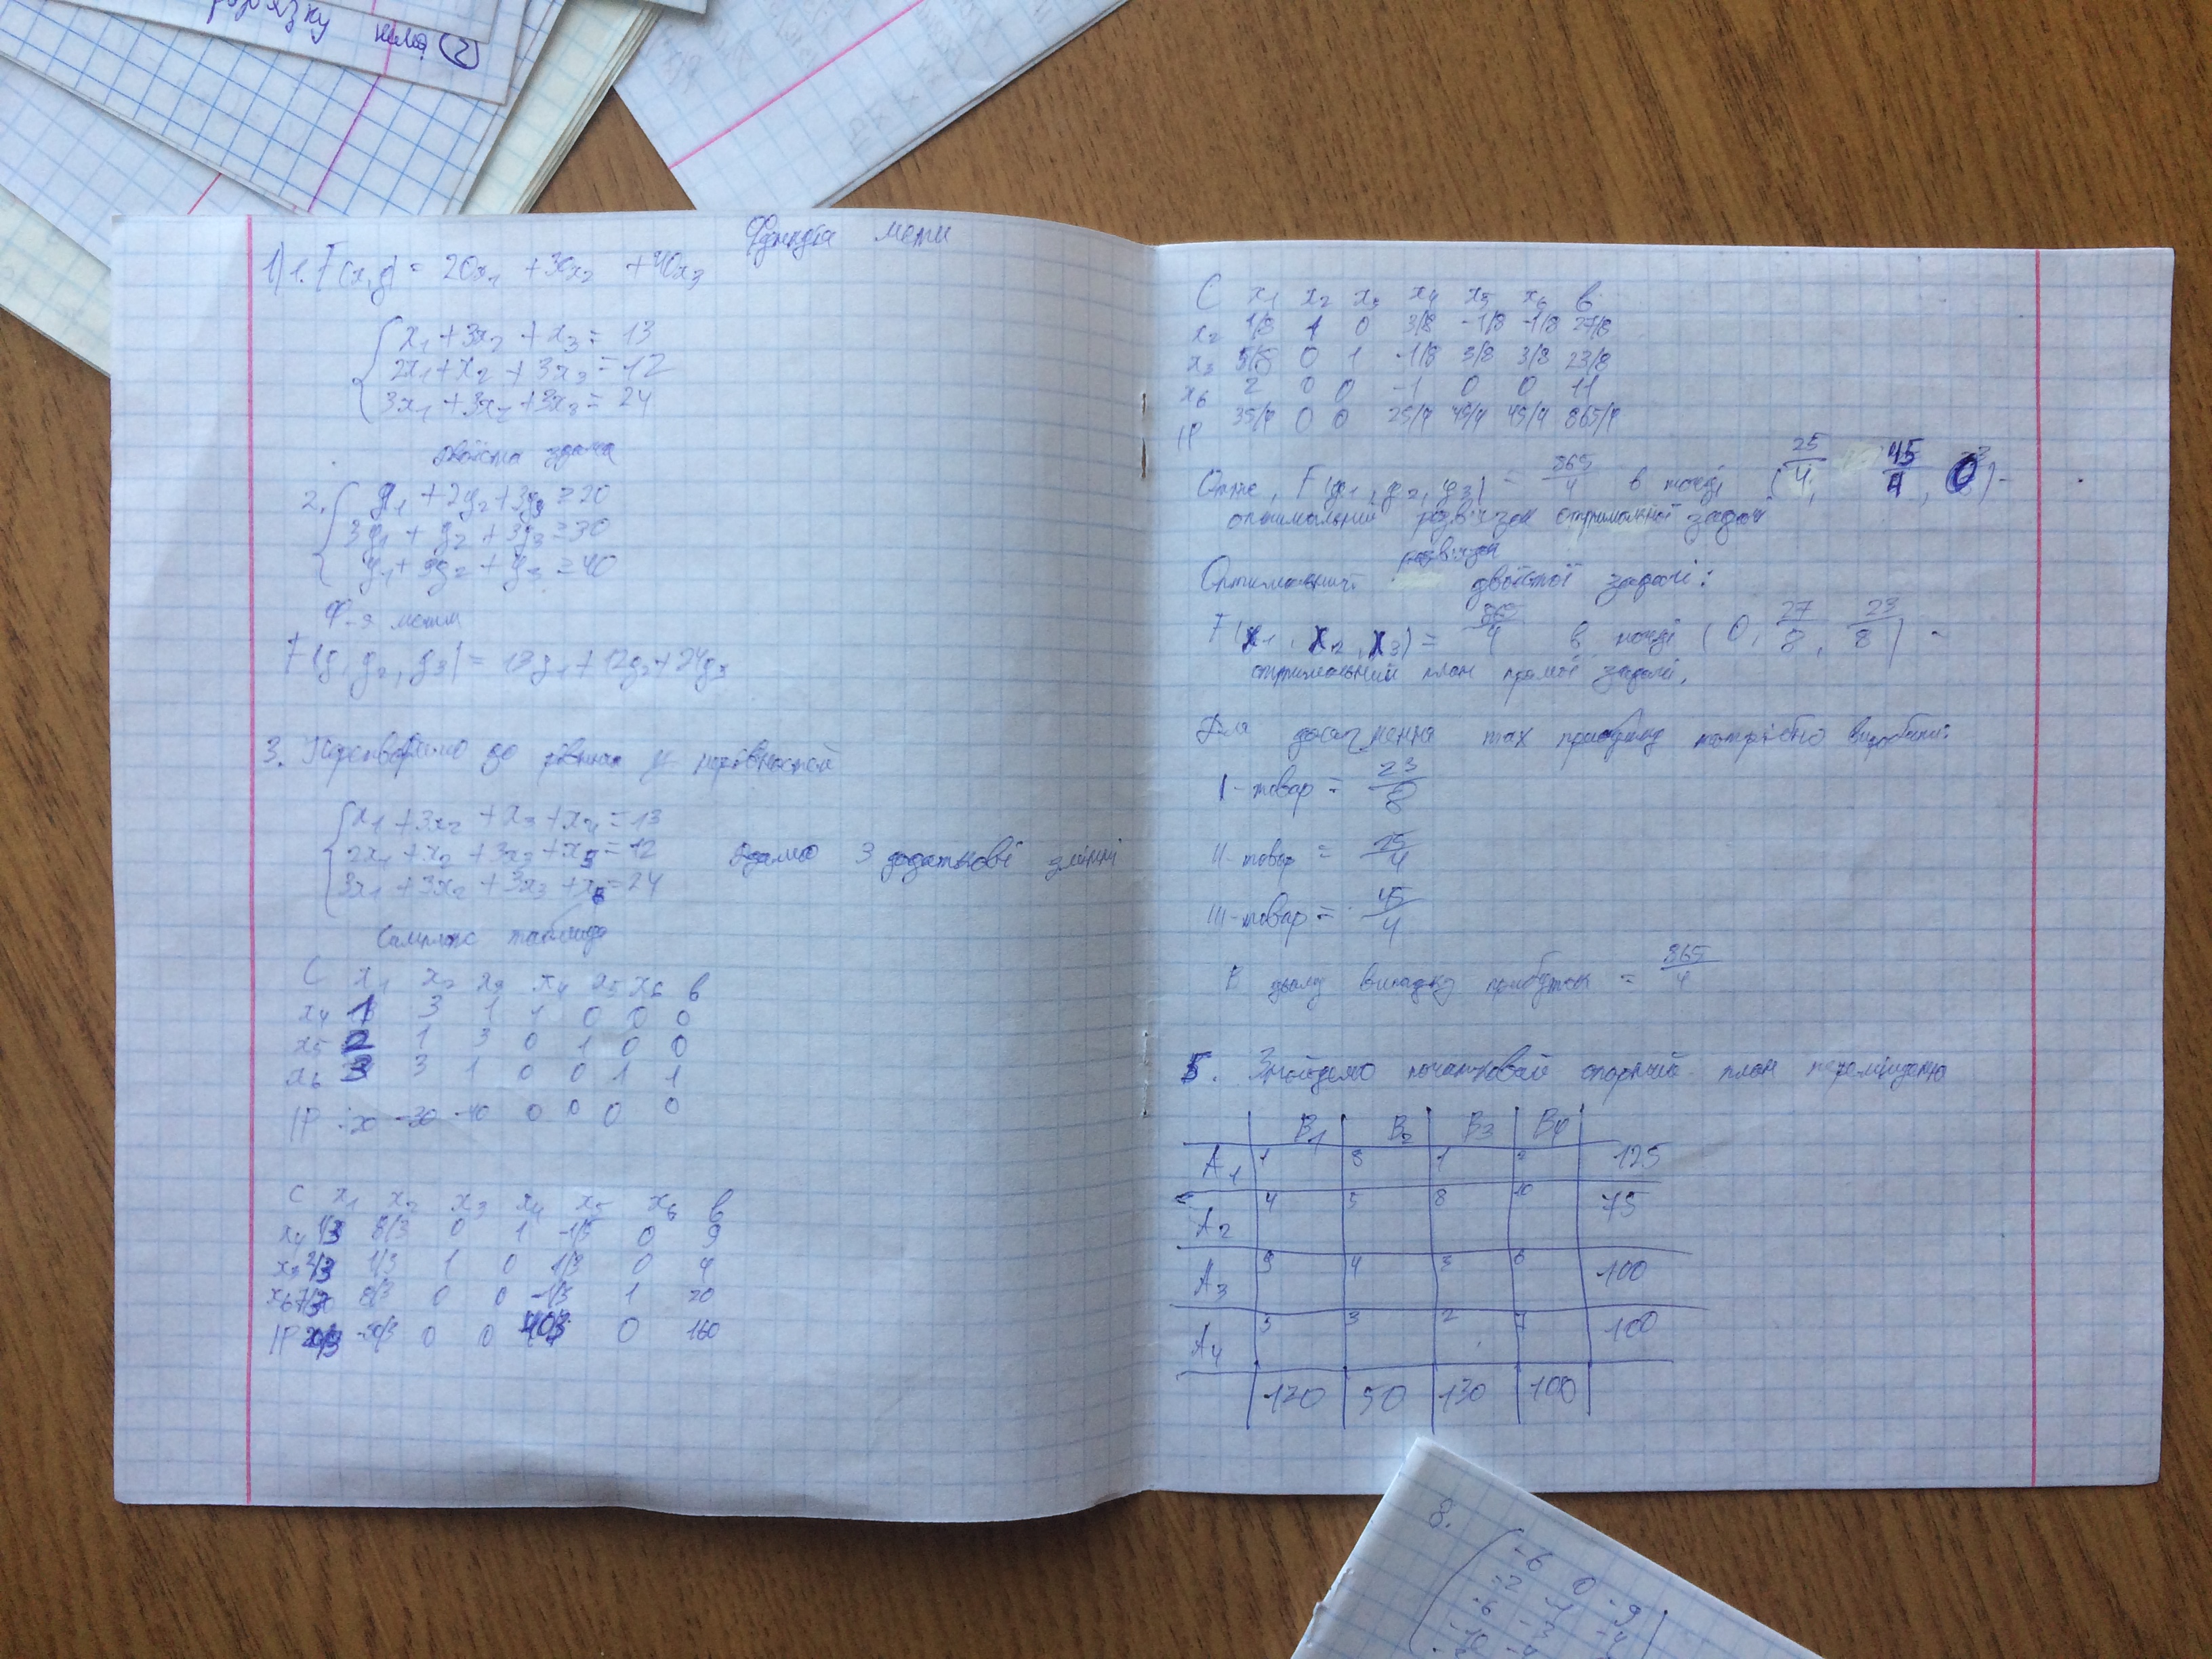 порядку
Функція мети
1) 1. F(x,y) = 20x₁ + 30x₂ + 40x₃
x₁ + 3x₂ + x₃ = 13
2x₁ + x₂ + 3x₃ = 12
3x₁ + 3x₂ + 3x₃ = 24
двоїста здача
2. y₁ + 2y₂ + 3y₃ = 20
3y₁ + y₂ + 3y₃ = 30
y₁ + 3y₂ + y₃ = 40
Ф-я мети
F(y₁ y₂, y₃) = 13y₁ + 12y₂ + 24y₃
3. Перетворимо до рівнян із нерівностей
x₁ + 3x₂ + x₃ + x₄ = 13
2x₁ + x₂ + 3x₃ + x₅ = 12 Вдамо 3 додаткові змінні
3x₁ + 3x₂ + 3x₃ + x₆ = 24
Симплекс таблиця
C x₁ x₂ x₃ x₄ x₅ x₆ b
x₄ 1 3 1 1 0 0 0
x₅ 2 1 3 0 1 0 0
x₆ 3 3 1 0 0 1 1
IP -20 -30 -40 0 0 0 0
C x₁ x₂ x₃ x₄ x₅ x₆ b
x₄ 1/3 8/3 0 1 -1/3 0 9
x₃ 2/3 1/3 1 0 1/3 0 4
x₆ 7/3 8/3 0 0 -1/3 1 20
IP 20/3 -50/3 0 0 40/3 0 160
C x₁ x₂ x₃ x₄ x₅ x₆ b
x₂ 1/8 1 0 3/8 -1/8 -1/8 27/8
x₃ 5/8 0 1 -1/8 3/8 3/8 23/8
x₆ 2 0 0 -1 0 0 11
IP 35/4 0 0 25/4 45/4 45/4 865/4
Отже, F(y₁, y₂, y₃) = 865/4 в точці (25/4, 45/4, 0) -
оптимальний розв'язок отриманої задачі
розв'язок
Оптимальний двоїстої задачі:
F(x₁, x₂, x₃) = 865/4 в точці (0, 27/8, 23/8) -
отриманий план прямої задачі.
Для досягнення max прибутку потрібно виробити:
I-товар = 23/8
II-товар = 25/4
III-товар = 45/4
В цьому випадку прибуток = 865/4
5. Знайдемо початковий опорний план переміщення
B₁ B₂ B₃ B₄
A₁ 1 3 1 125
A₂ 4 5 8 10 75
A₃ 9 4 3 6 100
A₄ 5 3 2 7 100
120 50 130 100
8.
-6 0 -9